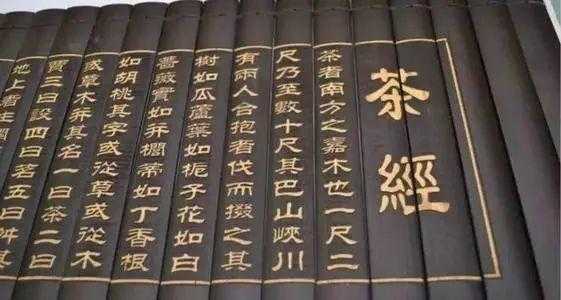 茶經
茶者南方之嘉木也一尺二
尺乃至數十尺其巴山峽川
有兩人合抱者伐而掇之其
樹如瓜蘆葉如梔子花如白
薔薇實如栟櫚蒂如丁香根
如胡桃其字或從草或從木
或草木并其名一曰茶二曰
賈三曰設四曰茗五曰舛其
地上者生